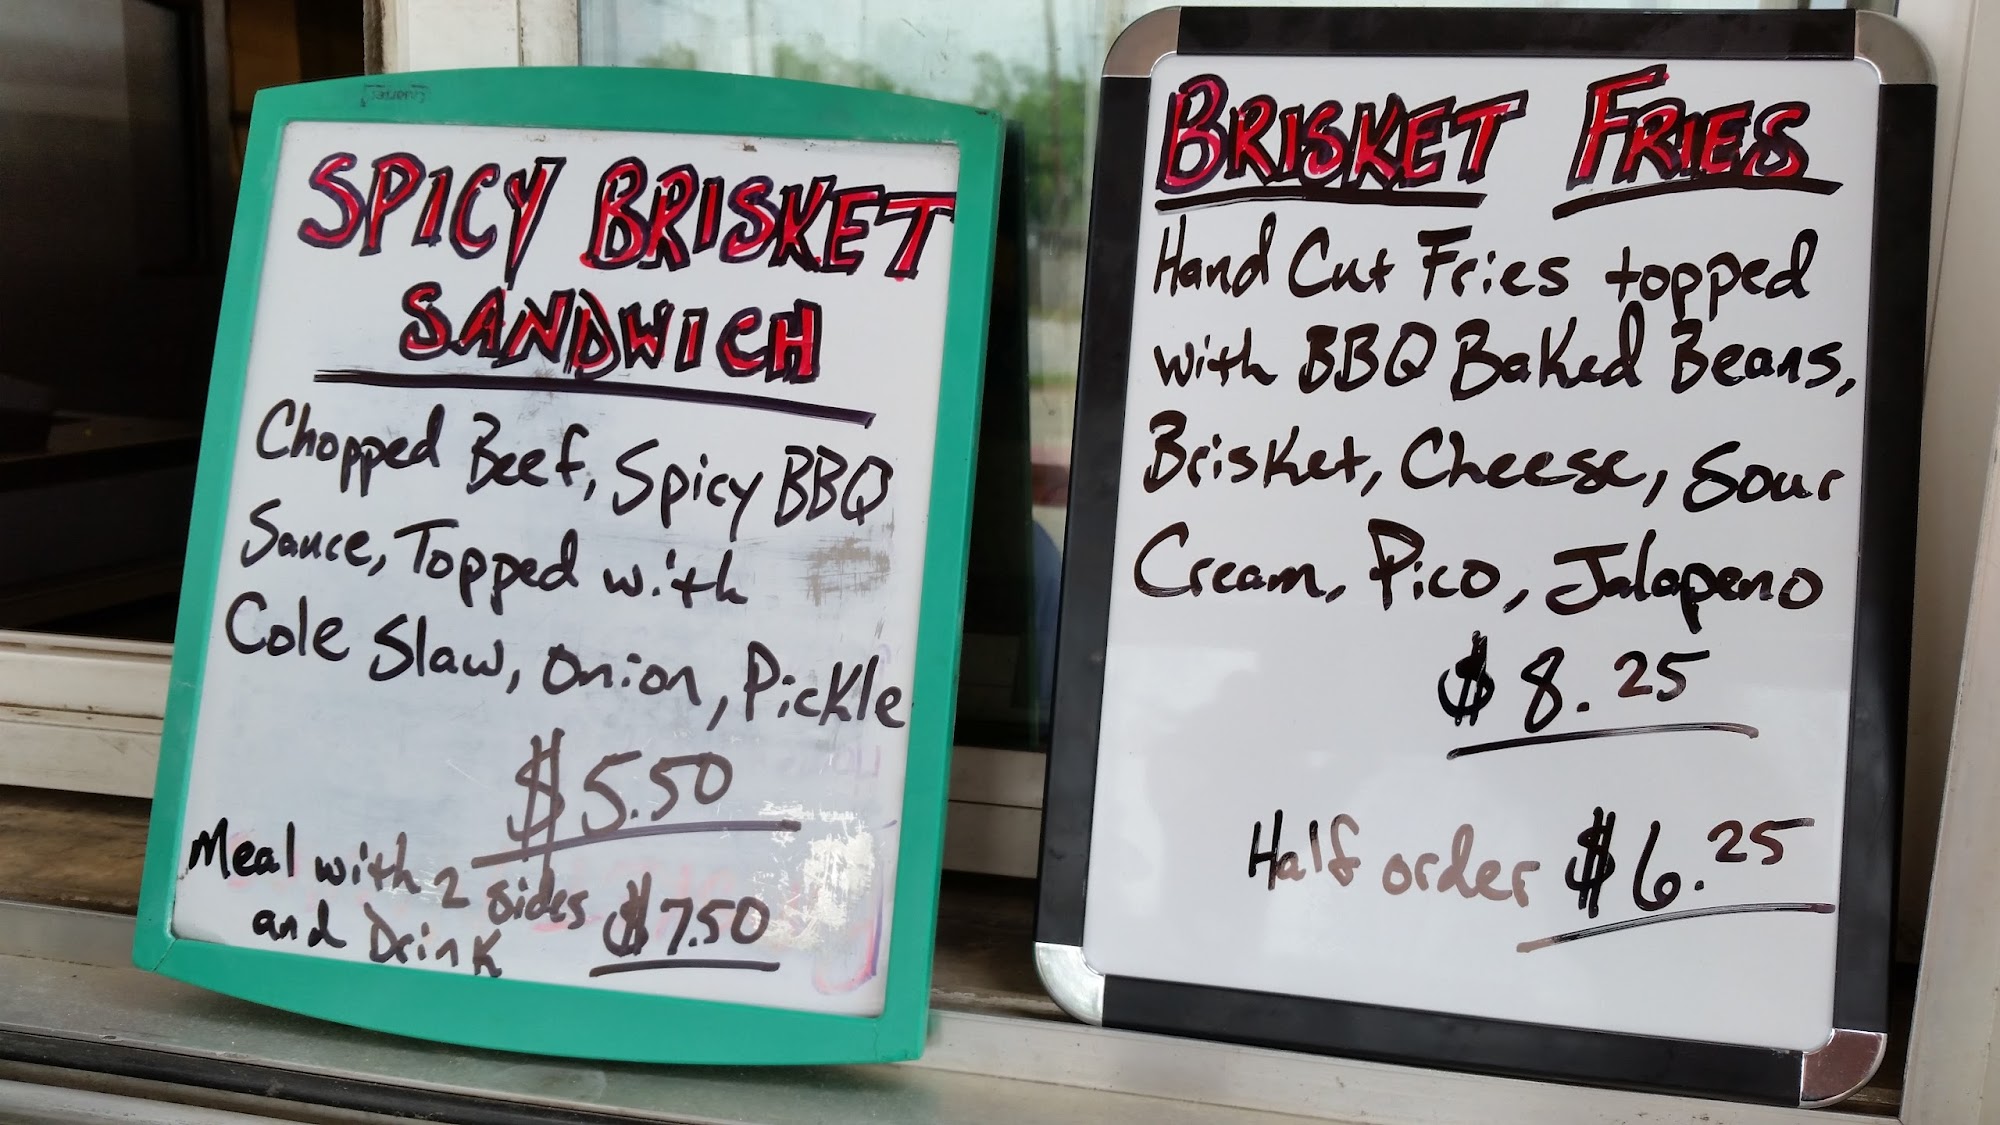 SPICY BRISKET
SANDWICH
Chopped Beef, Spicy BBQ
Sauce, Topped with
Cole Slaw, onion, Pickle
$5.50
Meal with 2 sides
and Drink $7.50
BRISKET FRIES
Hand Cut Fries topped
with BBQ Baked Beans,
Brisket, Cheese, Sour
Cream, Pico, Jalapeno
$8.25
Half order $6.25